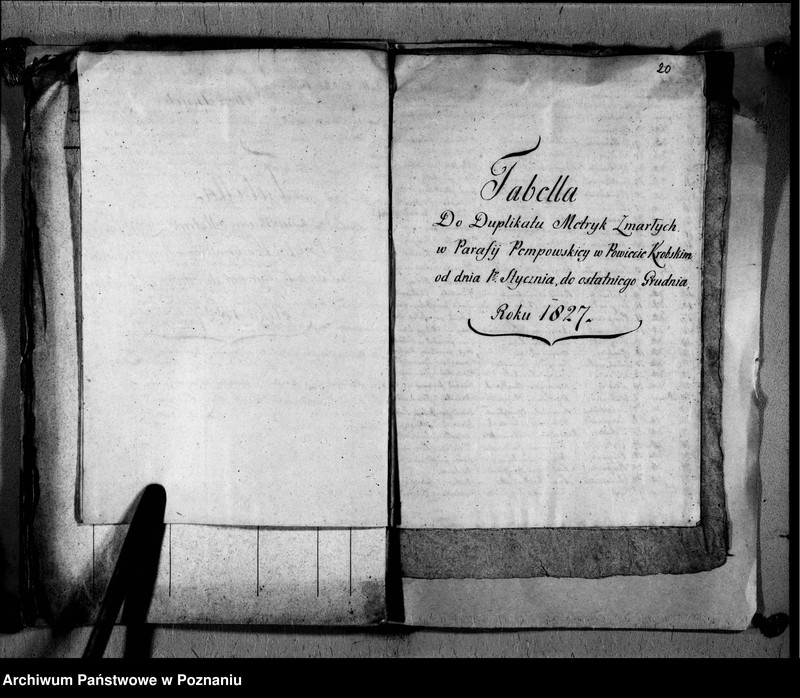 20
Tabella
Do Duplikatu Metryk Zmarłych
w Parafij Pempowskiey w Powiecie Krobskim
od dnia 1go Stycznia, do ostatniego Grudnia,
Roku 1827.
Archiwum Państwowe w Poznaniu